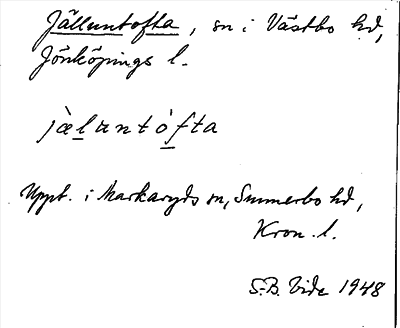 Jälluntofta, sn i Västbo hd,
Jönköpings l.
jæ̀lantòfta
Uppt. i Markaryds sn, Sunnerbo hd,
Kron. l.
S.B. Vide 1948